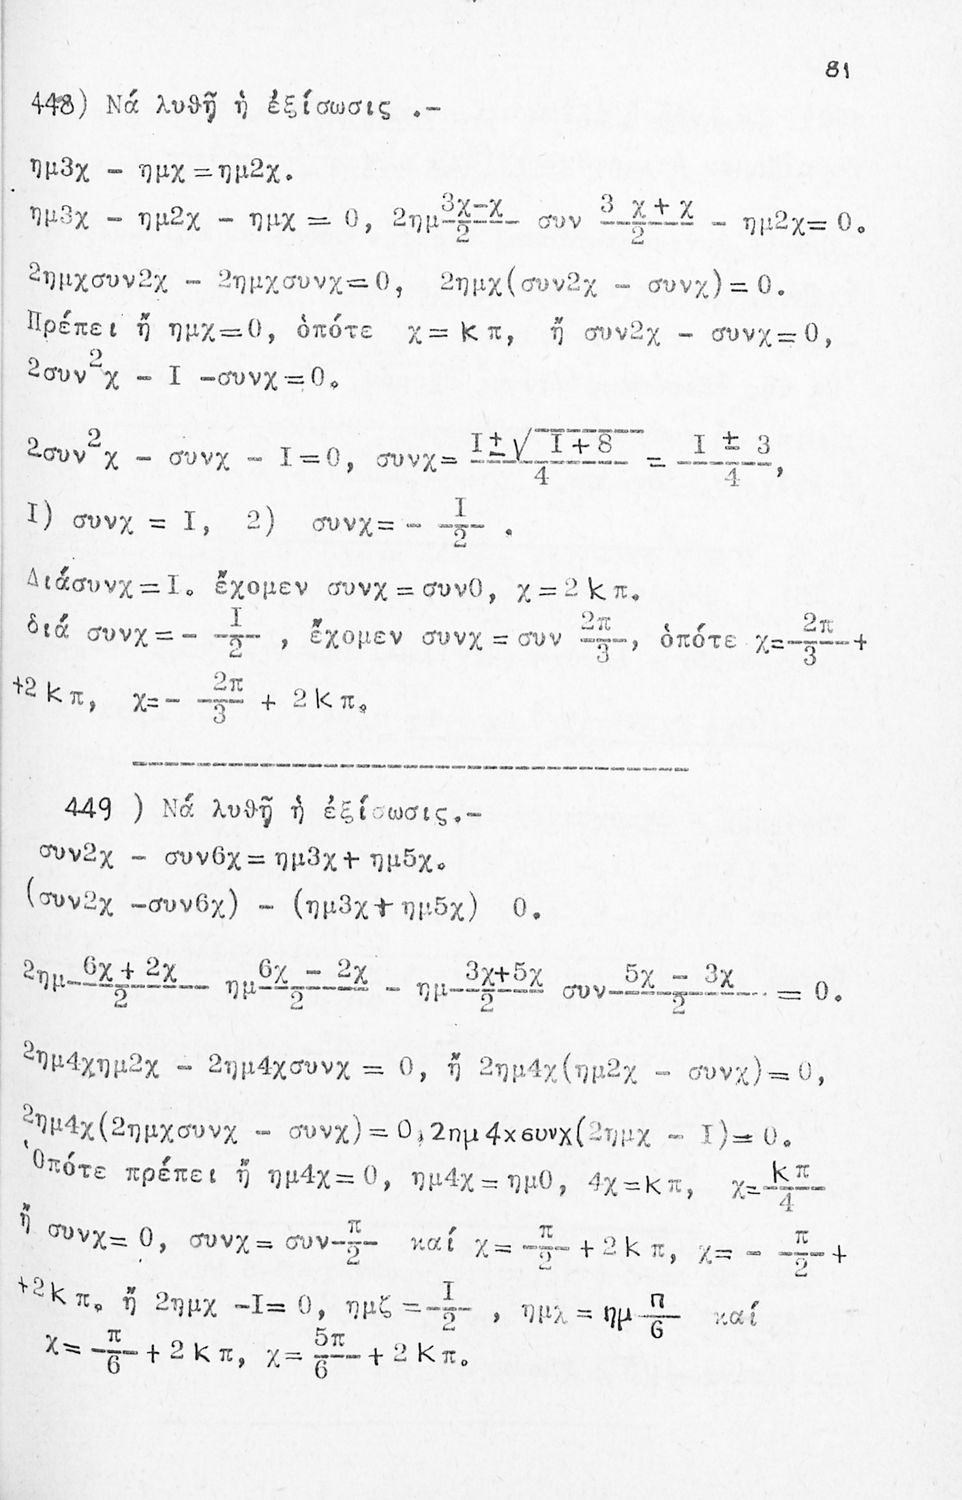 81
448) Νά λυθῇ ἡ ἐξίσωσις .-
ημ3χ - ημχ = ημ2χ.
ημ3χ - ημ2χ - ημχ = 0, 2ημ (3χ-χ)/2 συν (3 χ + χ)/2 - ημ2χ= 0.
2ημχσυν2χ - 2ημχσυνχ=0, 2ημχ(συν2χ - συνχ)= 0.
Πρέπει ἤ ημχ=0, ὁπότε χ= κ π, ἤ συν2χ - συνχ=0,
2συν²χ - I -συνχ=0.
2συν²χ - συνχ - I=0, συνχ= (I±√(I+8))/4 = (I ± 3)/4,
I) συνχ = I, 2) συνχ= - I/2 .
Διάσυνχ=I. ἔχομεν συνχ=συν0, χ=2 κ π.
διά συνχ= - I/2 , ἔχομεν συνχ=συν 2π/3, ὁπότε χ= 2π/3 +
+2 κ π, χ= - 2π/3 + 2 κ π.
449 ) Νά λυθῇ ἡ ἐξίσωσις.-
συν2χ - συν6χ= ημ3χ+ ημ5χ.
(συν2χ -συν6χ) - (ημ3χ+ημ5χ) 0.
2ημ (6χ+2χ)/2 ημ (6χ - 2χ)/2 - ημ (3χ+5χ)/2 συν (5χ - 3χ)/2 = 0.
2ημ4χημ2χ - 2ημ4χσυνχ = 0, ἤ 2ημ4χ(ημ2χ - συνχ)=0,
2ημ4χ(2ημχσυνχ - συνχ)=0,2ημ4χσυνχ(2ημχ - I)= 0.
Ὁπότε πρέπει ἤ ημ4χ=0, ημ4χ=ημ0, 4χ=κπ, χ= κπ/4
ἤ συνχ= 0, συνχ= συν π/2 καί χ= π/2 +2 κ π, χ= - π/2 +
+2κ π. ἤ 2ημχ -I= 0, ημζ = I/2 , ημχ = ημ π/6 καί
χ= π/6 + 2 κ π, χ= 5π/6 + 2 κ π.